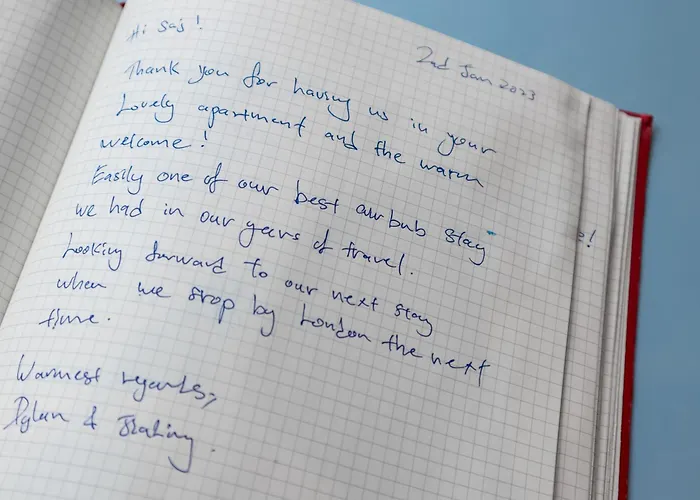 Hi Saj!
2nd Jan 2023
Thank you for having us in your
Lovely apartment and the warm
welcome!
Easily one of our best airbnb stay
we had in our years of travel.
Looking forward to our next stay
when we stop by London the next
time.
Warmest regards,
&
e!